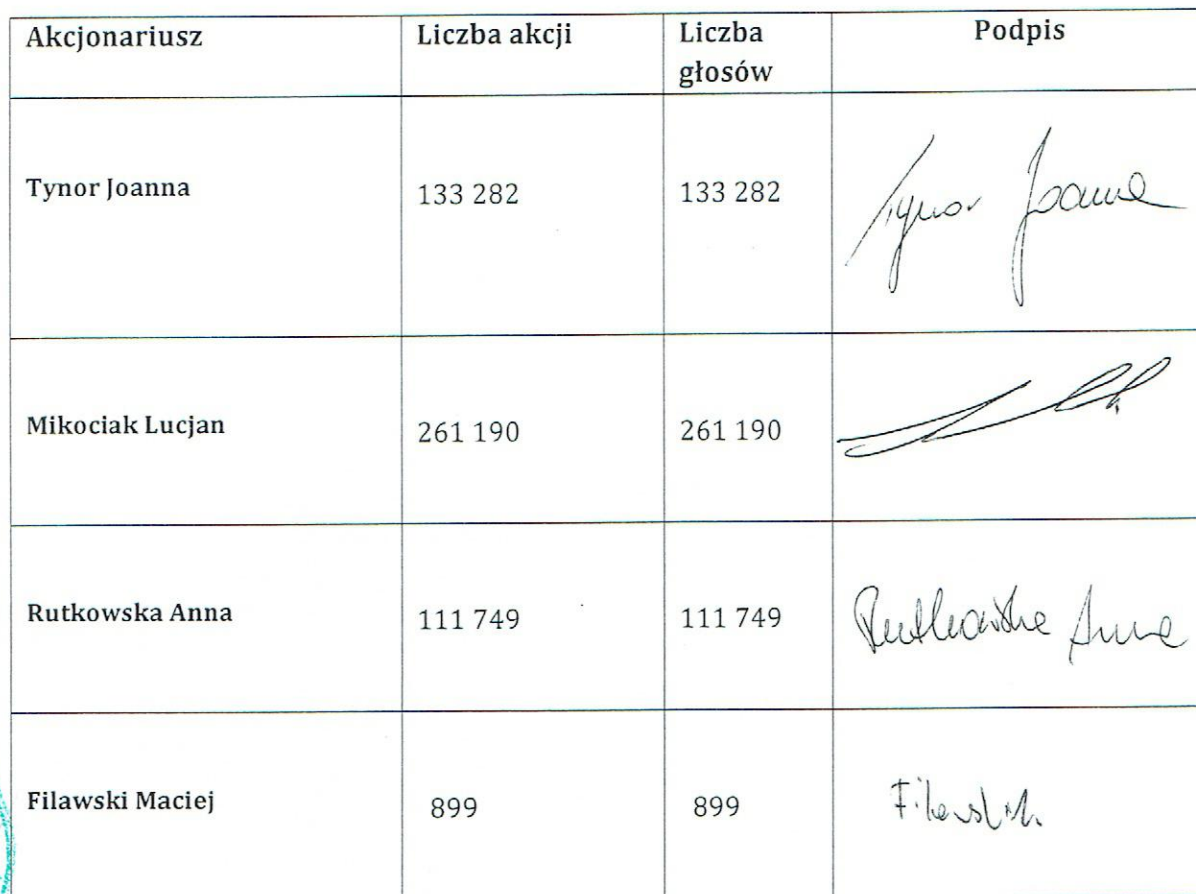 Akcjonariusz Liczba akcji Liczba głosów Podpis
Tynor Joanna 133 282 133 282 Tynor Joanna
Mikociak Lucjan 261 190 261 190
Rutkowska Anna 111 749 111 749 Rutkowska Anna
Filawski Maciej 899 899 Filawski